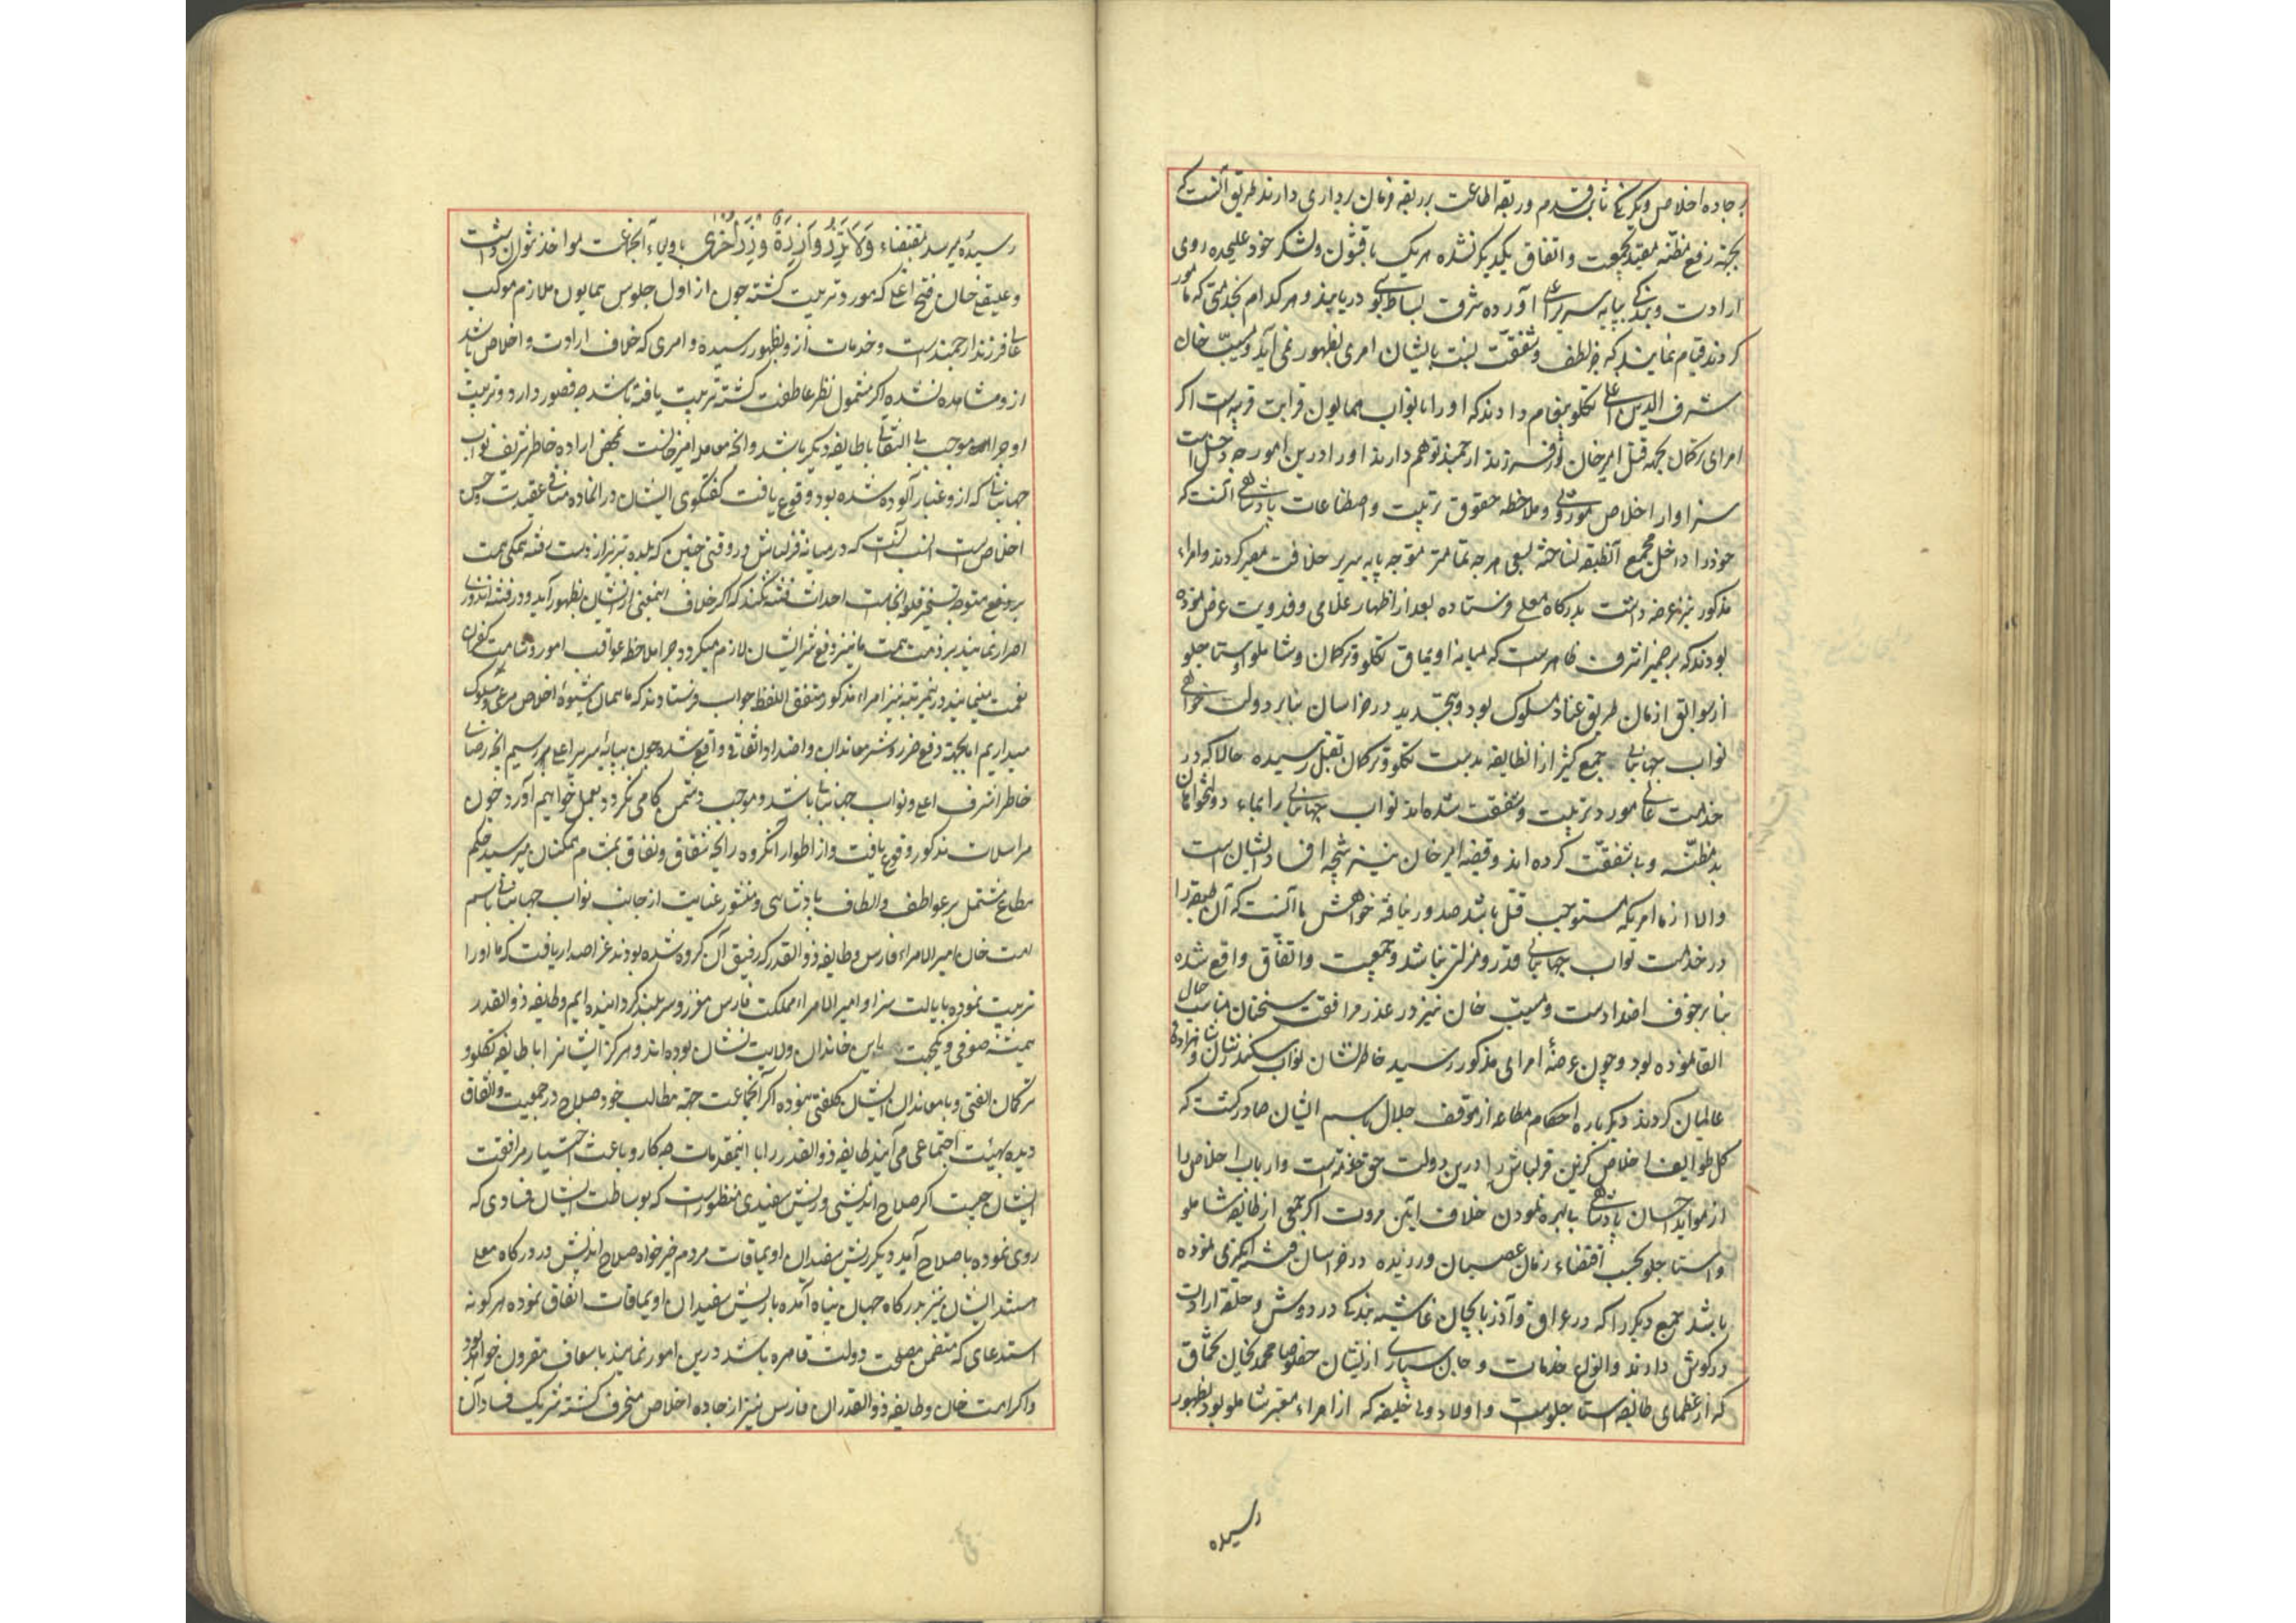 بر جاده اخلاص و یکرنگی ثابت قدم و ربقه اطاعت بر رقبه فرمان برداری دارند طریق آنست که
بجهة رفع مظنه مقید بجمعیت و اتفاق یکدیگر نشده هر یک با قشون و لشکر خود علیحده روی
ارادت و بندگی بپایه سریر اعلی آورده شرف بساط بوسی دریابند و هر کدام بخدمتی که مأمور
کردند قیام نمایند که جز لطف و شفقت نسبت بایشان امری بظهور نمی آید و مسیب خان
شرف الدین اغلی تکلو پیغام دادند که او را با نواب همایون قرابت قریبه است اگر
امرای ترکمان بجهة قتل امیر خان از فرزند ارجمند توهم دارند او را درین امور چه دخل است
سزاوار اخلاص موروثی و ملاحظه حقوق تربیت و اصطناعات پادشاهی آنست که
خود را داخل مجمع آنطبقه نساخته بسعی هر چه تمامتر متوجه پایه سریر خلافت مصیر کردند و امراء
مذکور نیز عرضه داشت بدرگاه معلی فرستاده بعد از اظهار غلامی و فدویت عرض نموده
بودند که بر ضمیر اشرف ظاهرست که میانه اویماق تکلو و ترکمان و شاملو و استاجلو
از سوابق ازمان طریق عناد مسلوک بود و بتجدید در خراسان بنابر دولت خواهی
نواب جهانبانی جمع کثیر از انطایفه بدست تکلو و ترکمان بقتل رسیده حالا که در
خدمت عالی مورد تربیت و شفقت شده اند نواب جهانبانی را بماء دولتخواهان
بد مظنه و بی شفقت کرده اند و قضیه امیر خان نیز نتیجه افساد ایشان است
والا از ما امریکه مستوجب قتل باشد صدور نیافته خواهش ما آنست که آن طبقه را
در خدمت نواب جهانبانی قدر و منزلتی نباشد و جمعیت و اتفاق واقع شده
بنابر خوف اضدادست و مسیب خان نیز در عذر مرافقت سخنان مناسب حال
القا نموده بود و چون عرضه امرای مذکور رسید خاطر نشان نواب سکندر شان و شاهزاده
عالمیان کردند دیگرباره احکام مطاعه از موقف جلال باسم ایشان صادر گشت که
کل طوایف اخلاص گزین قزلباش را درین دولت حق خدمتست و ارباب اخلاص را
از مواید احسان پادشاهی بی بهره نمودن خلاف آیین مروت اگر جمعی از طایفه شاملو
و استاجلو بحسب اقتضاء زمان عصیان ورزیده در خراسان فتنه انگیزی نموده
باشند جمع دیگر را که در عراق و آذربایجان غاشیه بندگی در دوش و حلقه ارادت
در گوش دارند و انواع خدمات و جان سپاری از ایشان خصوصا محمدی خان تخماق
که از عظمای طایفه استاجلوست و اولاد ولی خلیفه که از امراء معتبر شاملو بود بظهور
رسیده
رسیده میرسد بمقتضاء وَلَا تَزِرُ وَازِرَةٌ وِزْرَ أُخْرَى با ولیاء آنجماعت مواخذ نتوان داشت
و علیقلی خان فتح اغلی که مورد تربیت گشته چون از اول جلوس همایون ملازم موکب
عالی فرزند ارجمندست و خدمات از و بظهور رسیده و امری که خلاف ارادت و اخلاص باشد
از و مشاهده نشده اگر مشمول نظر عاطفت گشته تربیت یافته باشد چه قصور دارد و تربیت
او چرا موجب بی التفاتی با طایفه دیگر باشد و آنچه معامله امیر خانست بمحض اراده خاطر شریف نواب
جهانبانی که از و غبار آلوده شده بود وقوع یافت گفتگوی ایشان در انماده منافی عقیدت و حسن
اخلاص است انسب آنست که در میانه قزلباش در وقتی چنین که بلده تبریز از دست رفته همگی همت
بر دفع متوجه تسخیر قلعه آنجاست احداث فتنه نکنند که اگر خلاف اینمعنی از ایشان بظهور آید و در فتنه اندوزی
اصرار نمایند بر ذمت همت ما نیز دفع شر ایشان لازم میگردد چرا ملاحظه عواقب امور و شامت کفران
نعمت نمینمایند درینمرتبه نیز امراء مذکور متفق اللفظ جواب فرستادند که ما همان شیوه اخلاص مرعی و مسلوک
میداریم اما بجهة دفع ضرر و شر معاندان و اضداد اتفاقی واقع شده چون بپایه سریر اعلی میرسیم آنچه رضای
خاطر اشرف اعلی و نواب جهانبانی باشد و موجب دشمن کامی نگردد بعمل خواهیم آورد چون
مراسلات مذکور وقوع یافت و از اطوار آنگروه رایحه شقاق و نفاق بمشام همکنان میرسید حکم
مطاع مشتمل بر عواطف و الطاف پادشاهی و منشور عنایت از جانب نواب جهانبانی باسم
امت خان امیر الامراء فارس و طایفه ذوالقدر که رفیق آن گروه شده بودند عز اصدار یافت که ما او را
تربیت نموده بایالت شیراز و امیر الامراء مملکت فارس معزز و سربلند کردانیده ایم و طایفه ذوالقدر
همیشه صوفی و یکجهت این خاندان ولایت نشان بوده اند و هرگز ایشانرا با طایفه تکلو و
ترکمان الفتی و با معاندان ایشان کلفتی نبوده اگر آنجماعت جهة مطالب خود صلاح در جمعیت و اتفاق
دیده بهیئت اجتماعی می آیند طایفه ذوالقدر را با اینمقدمات چه کار و باعث اختیار مرافقت
ایشان چیست اگر صلاح اندیشی و ریش سفیدی منظورست که بوساطت ایشان فسادی که
روی نموده باصلاح آید دیگر ریش سفیدان اویماقات مردم خیر خواه صلاح اندیش در درگاه معلی
هستند ایشان نیز بدرگاه جهان پناه آمده با ریش سفیدان اویماقات اتفاق نموده هر گونه
استدعای که متضمن مصلحت دولت قاهره باشد درین امور نمایند باسعاف مقرون خواهد بود
و اگر امت خان و طایفه ذوالقدران فارس نیز از جاده اخلاص منحرف گشته شریک فساد آن